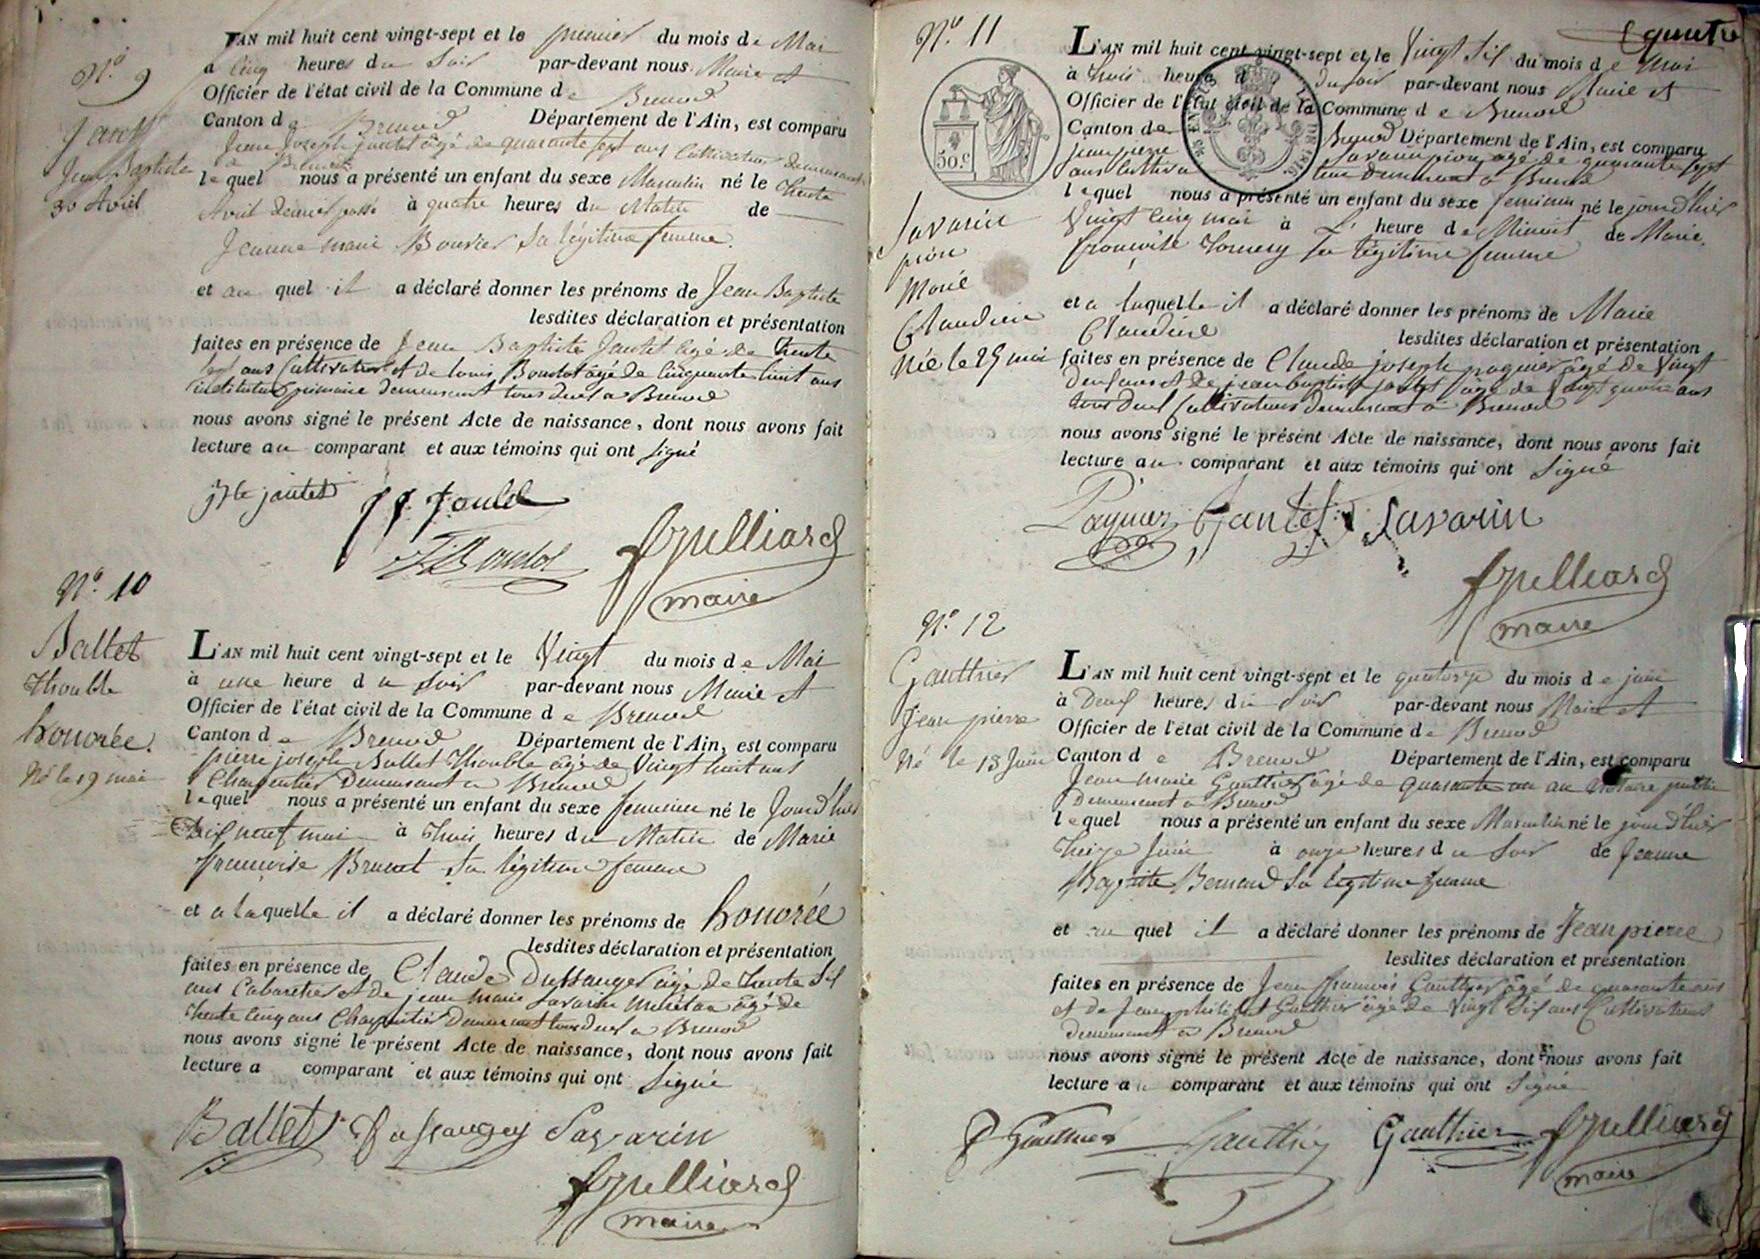 N.º 9
Jantet
Jean Baptiste
30 Avril
L'AN mil huit cent vingt-sept et le premier du mois de Mai
à cinq heures du soir par-devant nous Maire et
Officier de l'état civil de la Commune de Brenod
Canton de Brenod Département de l'Ain, est comparu
Jean Joseph Jantet âgé de quarante sept ans Cultivateur demeurant
à Brenod
lequel nous a présenté un enfant du sexe Masculin né le trente
Avril dernier passé à quatre heures du Matin de
Jeanne marie Bouvier sa légitime femme.
et au quel il a déclaré donner les prénoms de Jean Baptiste
lesdites déclaration et présentation
faites en présence de Jean Baptiste Jantet âgé de trente
sept ans Cultivateur et de Louis Boudot âgé de cinquante huit ans
instituteur primaire demeurant tous deux à Brenod
nous avons signé le présent Acte de naissance, dont nous avons fait
lecture au comparant et aux témoins qui ont signé
jbte jantet
maire
N.º 10
Ballet
Thouble
honorée.
Né le 19 mai
L'AN mil huit cent vingt-sept et le Vingt du mois de Mai
à une heure du soir par-devant nous Maire et
Officier de l'état civil de la Commune de Brenod
Canton de Brenod Département de l'Ain, est comparu
pierre joseph Ballet Thouble âgé de Vingt huit ans
Charpentier Demeurant à Brenod
lequel nous a présenté un enfant du sexe feminin né le Jourd'hier
Dix neuf mai à trois heures du Matin de Marie
françoise Brunet sa légitime femme
et a laquelle il a déclaré donner les prénoms de honorée
lesdites déclaration et présentation
faites en présence de Claude Dussauger âgé de trente six
ans Cabaretier et de jean marie Savarin âgé de
trente cinq ans Charpentier Demeurant tous deux à Brenod
nous avons signé le présent Acte de naissance, dont nous avons fait
lecture a comparant et aux témoins qui ont signé
Ballet Dussaugey Savarin
maire
quatre
N.º 11
50.c
Savarin
pion
Marie
Claudine
Née le 25 mai
L'AN mil huit cent vingt-sept et le Vingt six du mois de mai
à trois heures du soir par-devant nous Maire et
Officier de l'état civil de la Commune de Brenod
Canton de Brenod Département de l'Ain, est comparu
jean pierre Savarin pion âgé de quarante sept
ans Cultivateur demeurant à Brenod
lequel nous a présenté un enfant du sexe feminin né le jourd'hier
Vingt cinq mai à heure de Minuit de Marie
françoise sa légitime femme
et a laquelle il a déclaré donner les prénoms de Marie
Claudine
lesdites déclaration et présentation
faites en présence de Claude joseph paquier âgé de Vingt
deux ans et de jean baptiste jantet âgé de Vingt quatre ans
tous deux Cultivateurs demeurant à Brenod
nous avons signé le présent Acte de naissance, dont nous avons fait
lecture au comparant et aux témoins qui ont signé
Paquier Jantet Savarin
maire
N.º 12
Gauthier
Jean pierre
Né le 13 Juin
L'AN mil huit cent vingt-sept et le quatorze du mois de juin
à deux heures du soir par-devant nous Maire et
Officier de l'état civil de la Commune de Brenod
Canton de Brenod Département de l'Ain, est comparu
Jean marie Gauthier âgé de quarante un an Notaire public
demeurant à Brenod
lequel nous a présenté un enfant du sexe Masculin né le jourd'hier
Treize Juin à onze heures du soir de Jeanne
Baptiste Bernard sa légitime femme
et au quel il a déclaré donner les prénoms de Jean pierre
lesdites déclaration et présentation
faites en présence de Jean françois Gauthier âgé de quarante ans
et de Jean Gauthier âgé de Vingt six ans Cultivateurs
demeurant à Brenod
nous avons signé le présent Acte de naissance, dont nous avons fait
lecture au comparant et aux témoins qui ont signé
Gauthier Gauthier Gauthier
maire